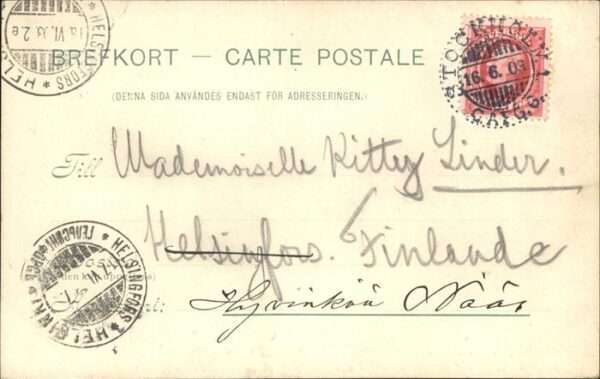 HELSINGFORS
1a.VI.03 2.e
HEL
BREFKORT — CARTE POSTALE
(DENNA SIDA ANVÄNDES ENDAST FÖR ADRESSERINGEN.)
STOCKHOLM 1
16.6.03
C.AFG.S.
Till Mademoiselle Kitty Linder.
Helsingfors. Finlande
Hyvinkää Nääs
HELSINGFORS
HELSINKI
ГЕЛЬСИНГФОРСЪ
VI